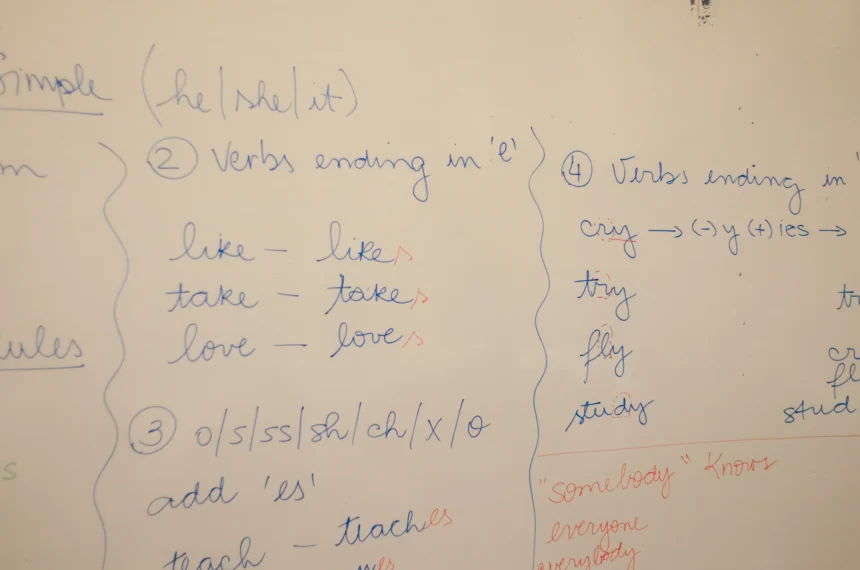 Simple (he/she/it)
m
ules
s
② Verbs ending in 'e'
like – likes
take – takes
love – loves
③ o/s/ss/sh/ch/x/o
add 'es'
teach – teaches
es
④ Verbs ending in '
cry → (-) y (+) ies →
try tr
fly cr
fl
study stud
"somebody" knows
everyone
everybody